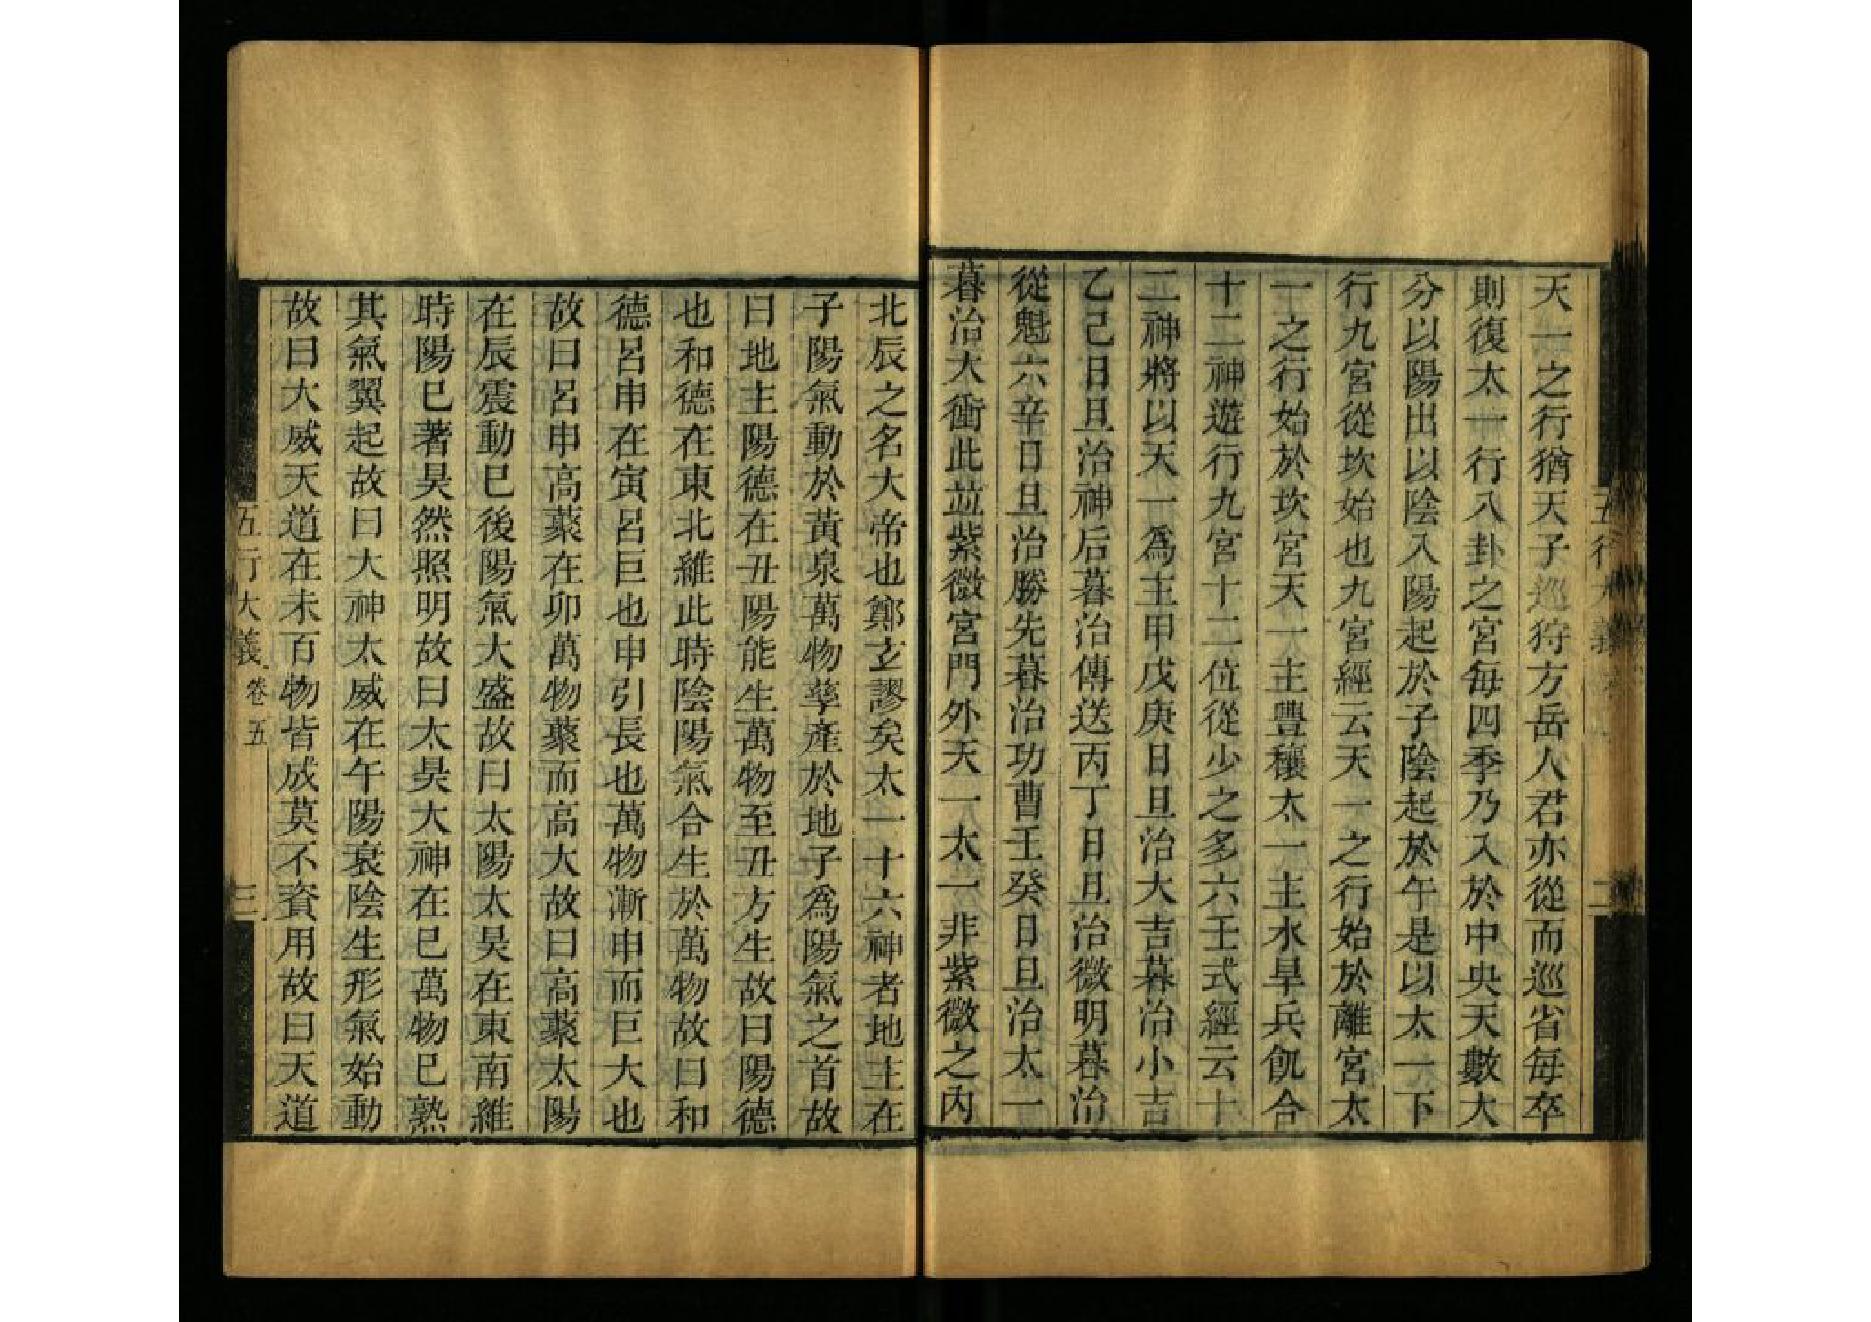 天一之行猶天子巡狩方岳人君亦從而巡省每卒
則復太一行八卦之宮每四季乃入於中央天數大
分以陽出以陰入陽起於子陰起於午是以太一下
行九宮從坎始也九宮經云天一之行始於離宮太
一之行始於坎宮天一主豐穰太一主水旱兵飢合
十二神遊行九宮十二位從少之多六壬式經云十
二神將以天一為主甲戊庚日旦治大吉暮治小吉
乙己日旦治神后暮治傳送丙丁日旦治微明暮治
從魁六辛日旦治勝先暮治功曹壬癸日旦治太一
暮治太衝此並紫微宮門外天一太一非紫微之內
北辰之名大帝也鄭玄謬矣太一十六神者地主在
子陽氣動於黃泉萬物孳產於地子為陽氣之首故
曰地主陽德在丑陽能生萬物至丑方生故曰陽德
也和德在東北維此時陰陽氣合生於萬物故曰和
德呂申在寅呂巨也申引長也萬物漸申而巨大也
故曰呂申高藂在卯萬物藂而高大故曰高藂太陽
在辰震動巳後陽氣大盛故曰太陽太昊在東南維
時陽巳著昊然照明故曰太昊大神在巳萬物巳熟
其氣翼起故曰大神太威在午陽衰陰生形氣始動
故曰大威天道在未百物皆成莫不資用故曰天道
五行大義 卷五
三